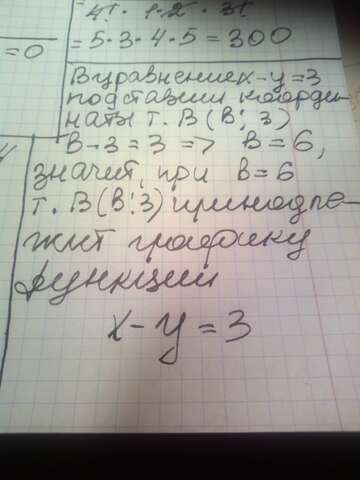 4! · 1·2 · 3!
=0
=5·3·4·5=300
В уравнение x-y=3
подставим коорди-
наты т. В(в; 3)
в-3=3 => в=6,
значит, при в=6
т. В(в;3) принадле-
жит графику
функции
x-y=3